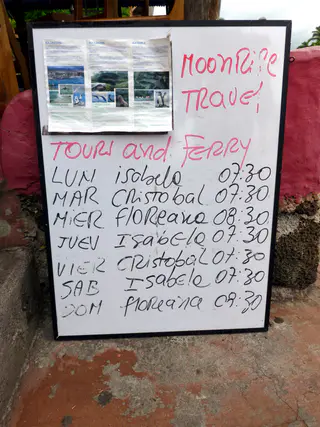 MOONRISE
TRAVEL
TOURS and FERRY
LUN isabela 07:30
MAR CRistobal 07:30
MIER floreana 08:30
JUEV IsabEla 07:30
VIER CRistobal 07:30
SAB IsabEla 07:30
DOM floreana 08:30